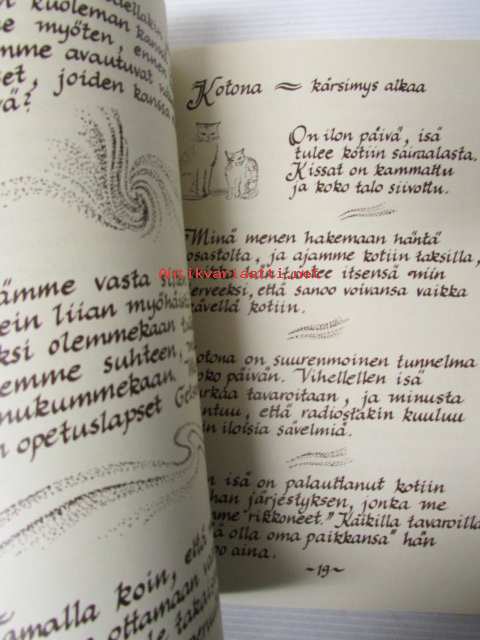 kuoleman kanssa
myöten, ennen
mme avautuvat
set, joiden kanssa
vä?
ämme vasta
ein liian myöhäistä
ksi olemmekaan
emme suhteen,
nukummekaan.
n opetuslapset
amalla koin, että
ottamaan
Kotona ~ kärsimys alkaa
On ilon päivä, isä
tulee kotiin sairaalasta.
Kissat on kammattu
ja koko talo siivottu.
Minä menen hakemaan häntä
osastolta, ja ajamme kotiin taksilla,
itsensä niin
terveeksi, että sanoo voivansa vaikka
kävellä kotiin.
kotona on suurenmoinen tunnelma
koko päivän. Vihellellen isä
tavaroitaan, ja minusta
tuntuu, että radiostakin kuuluu
iloisia sävelmiä.
isä on palauttanut kotiin
järjestyksen, jonka me
rikkoneet." Kaikilla tavaroilla
olla oma paikkansa" hän
aina.
~19~
Antikvariaatti.net